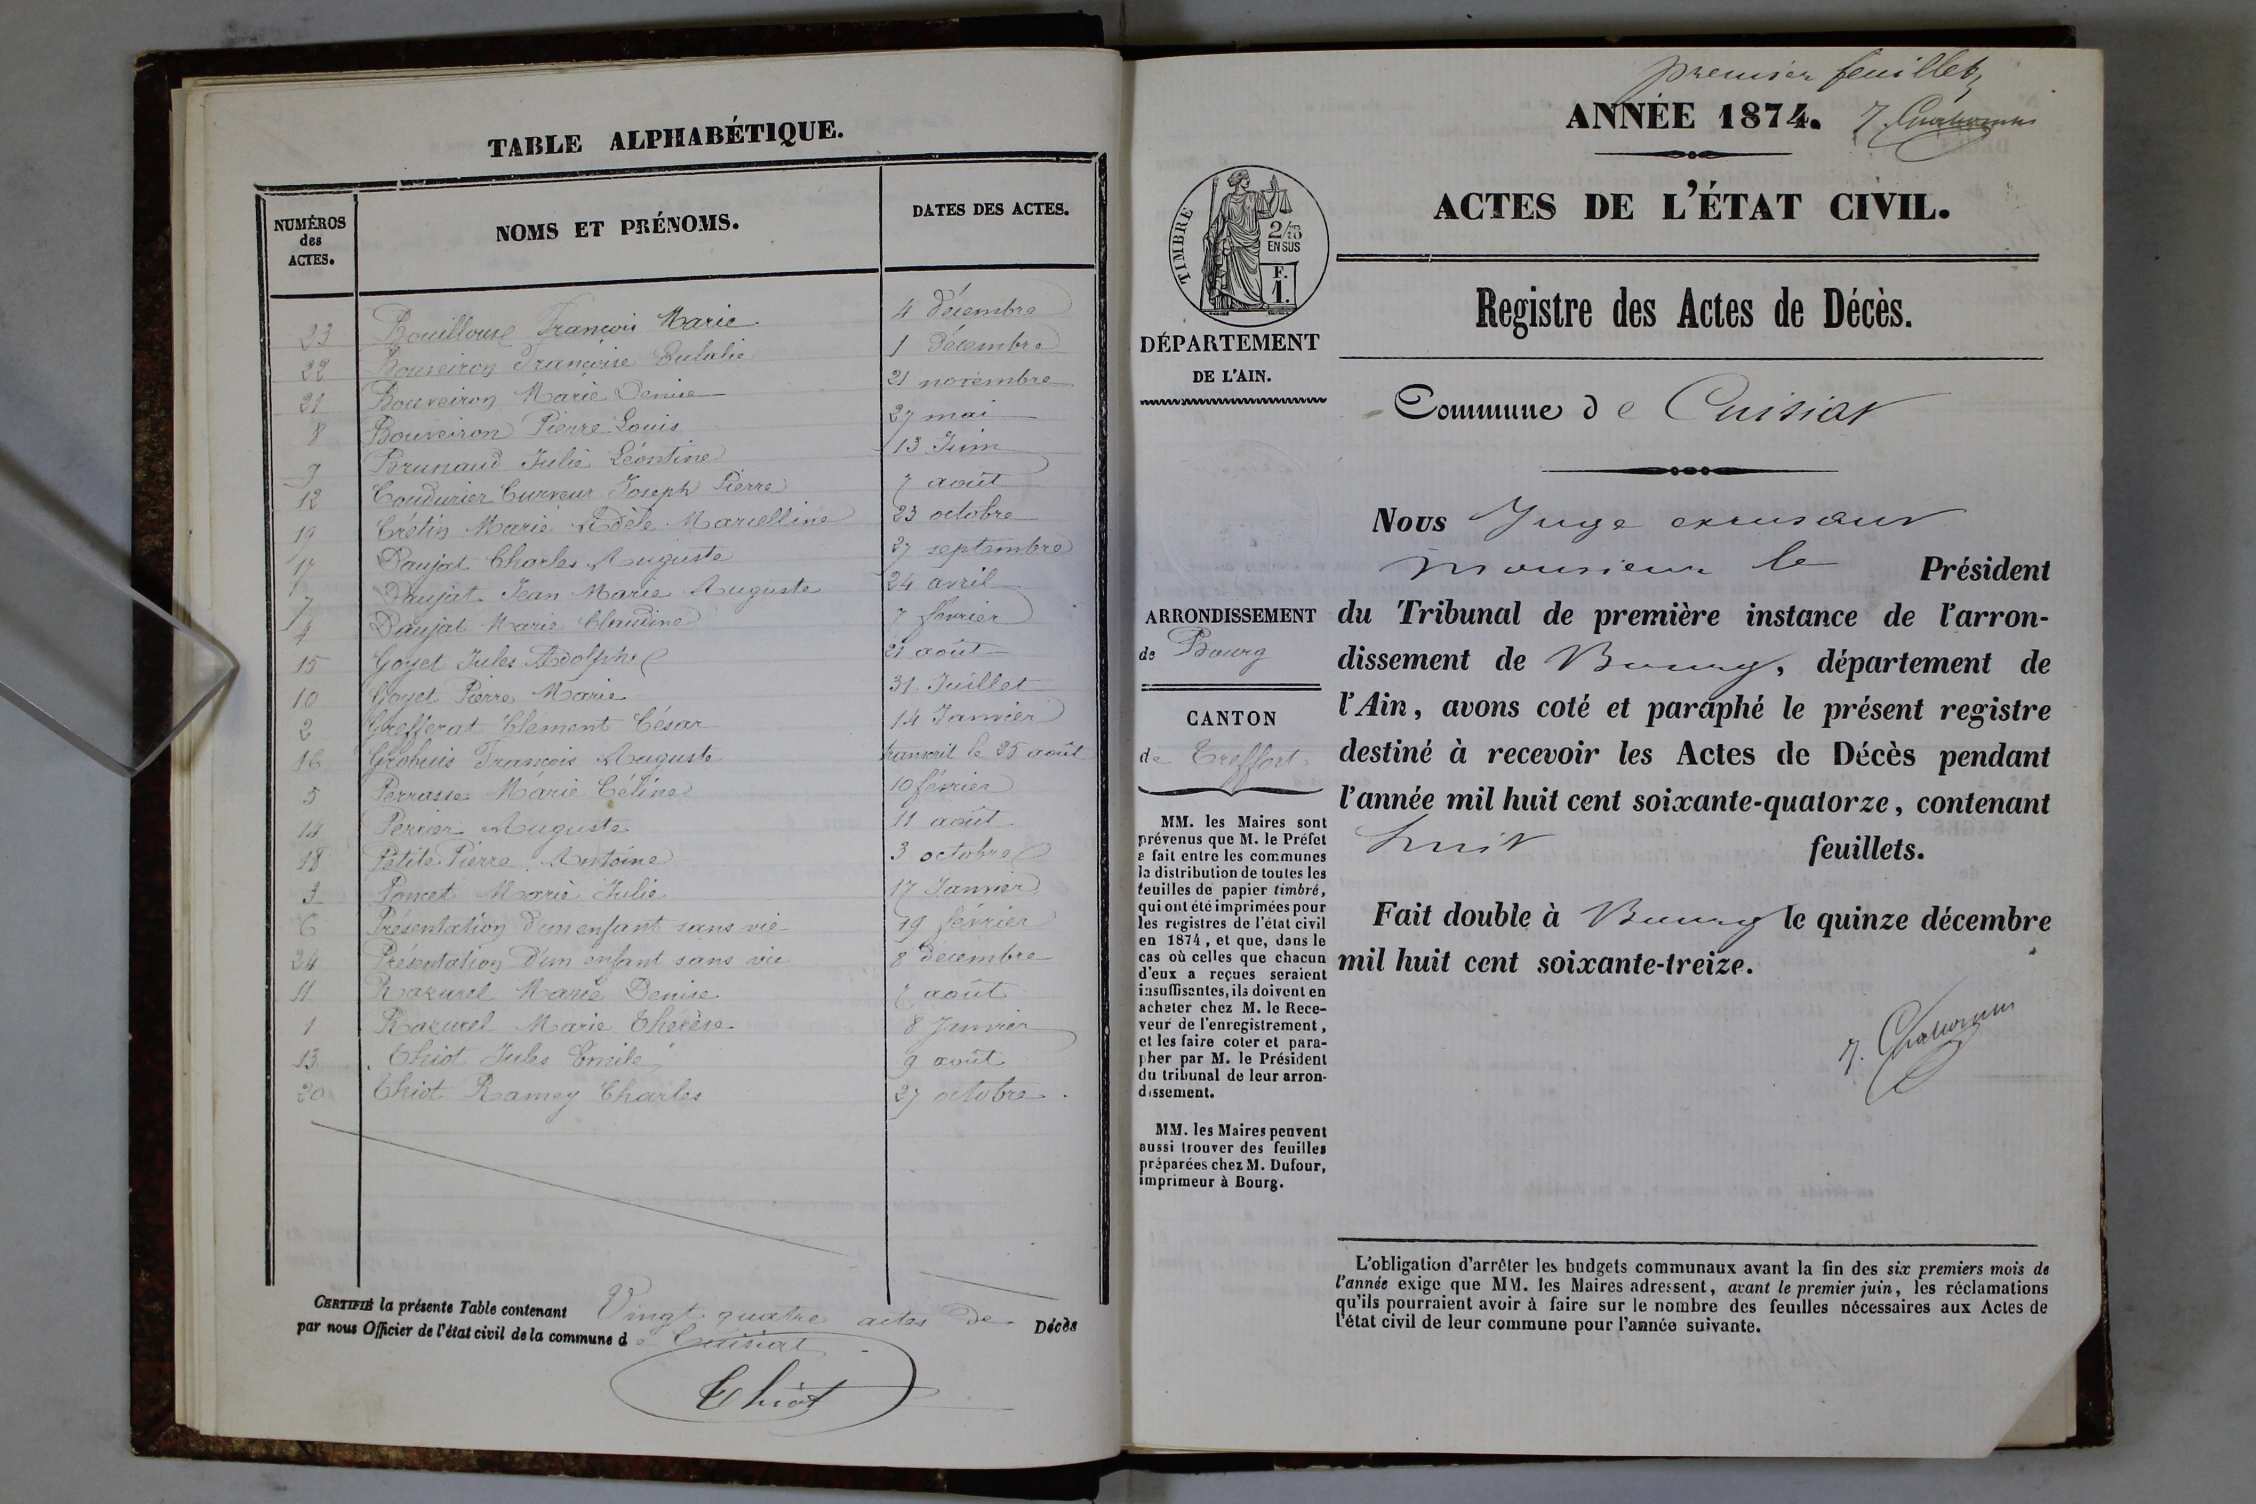 TABLE ALPHABÉTIQUE.
NUMÉROS des ACTES. NOMS ET PRÉNOMS. DATES DES ACTES.
23 François Marie 4 Décembre
22 Françoise Eulalie 1 Décembre
21 Bouveiron Marie Denise 21 novembre
8 Bouveiron Pierre Louis 27 mai
9 Brunaud Julie Léontine 13 Juin
12 Coudurier Curveur Joseph Pierre 7 août
19 Crétin Marie Adèle Marcelline 23 octobre
17 Daujat Charles Auguste 27 septembre
7 Daujat Jean Marie Auguste 24 avril
4 Daujat Marie Claudine 7 février
15 Goyet Jules Adolphe 21 août
10 Goyet Pierre Marie 31 Juillet
2 Grefferat Clément César 14 Janvier
16 Grobuis François Auguste transcrit le 25 août
5 Perrasse Marie Céline 10 février
14 Perrier Auguste 11 août
18 Petite Pierre Antoine 3 octobre
3 Poncet Marie Julie 17 Janvier
6 Présentation d'un enfant sans vie 19 février
24 Présentation d'un enfant sans vie 8 décembre
11 Razurel Marie Denise août
1 Razurel Marie Thérèse 8 Janvier
13 Thiot Jules Emile 9 août
20 Thiot Ramey Charles 27 octobre
CERTIFIÉ la présente Table contenant Vingt quatre actes de Décès
par nous Officier de l'état civil de la commune de Cuisiat
Thiot
premier feuillet
ANNÉE 1874.
ACTES DE L'ÉTAT CIVIL.
TIMBRE
2/10
EN SUS
F.
1.
Registre des Actes de Décès.
DÉPARTEMENT
DE L'AIN.
Commune de Cuisiat
ARRONDISSEMENT
de Bourg
CANTON
de Treffort
MM. les Maires sont
prévenus que M. le Préfet
a fait entre les communes
la distribution de toutes les
feuilles de papier timbré,
qui ont été imprimées pour
les registres de l'état civil
en 1874, et que, dans le
cas où celles que chacun
d'eux a reçues seraient
insuffisantes, ils doivent en
acheter chez M. le Rece-
veur de l'enregistrement,
et les faire coter et para-
pher par M. le Président
du tribunal de leur arron-
dissement.
MM. les Maires peuvent
aussi trouver des feuilles
préparées chez M. Dufour,
imprimeur à Bourg.
Nous Juge excusant
monsieur le Président
du Tribunal de première instance de l'arron-
dissement de Bourg, département de
l'Ain, avons coté et paraphé le présent registre
destiné à recevoir les Actes de Décès pendant
l'année mil huit cent soixante-quatorze, contenant
huit feuillets.
Fait double à Bourg le quinze décembre
mil huit cent soixante-treize.
L'obligation d'arrêter les budgets communaux avant la fin des six premiers mois de
l'année exige que MM. les Maires adressent, avant le premier juin, les réclamations
qu'ils pourraient avoir à faire sur le nombre des feuilles nécessaires aux Actes de
l'état civil de leur commune pour l'année suivante.